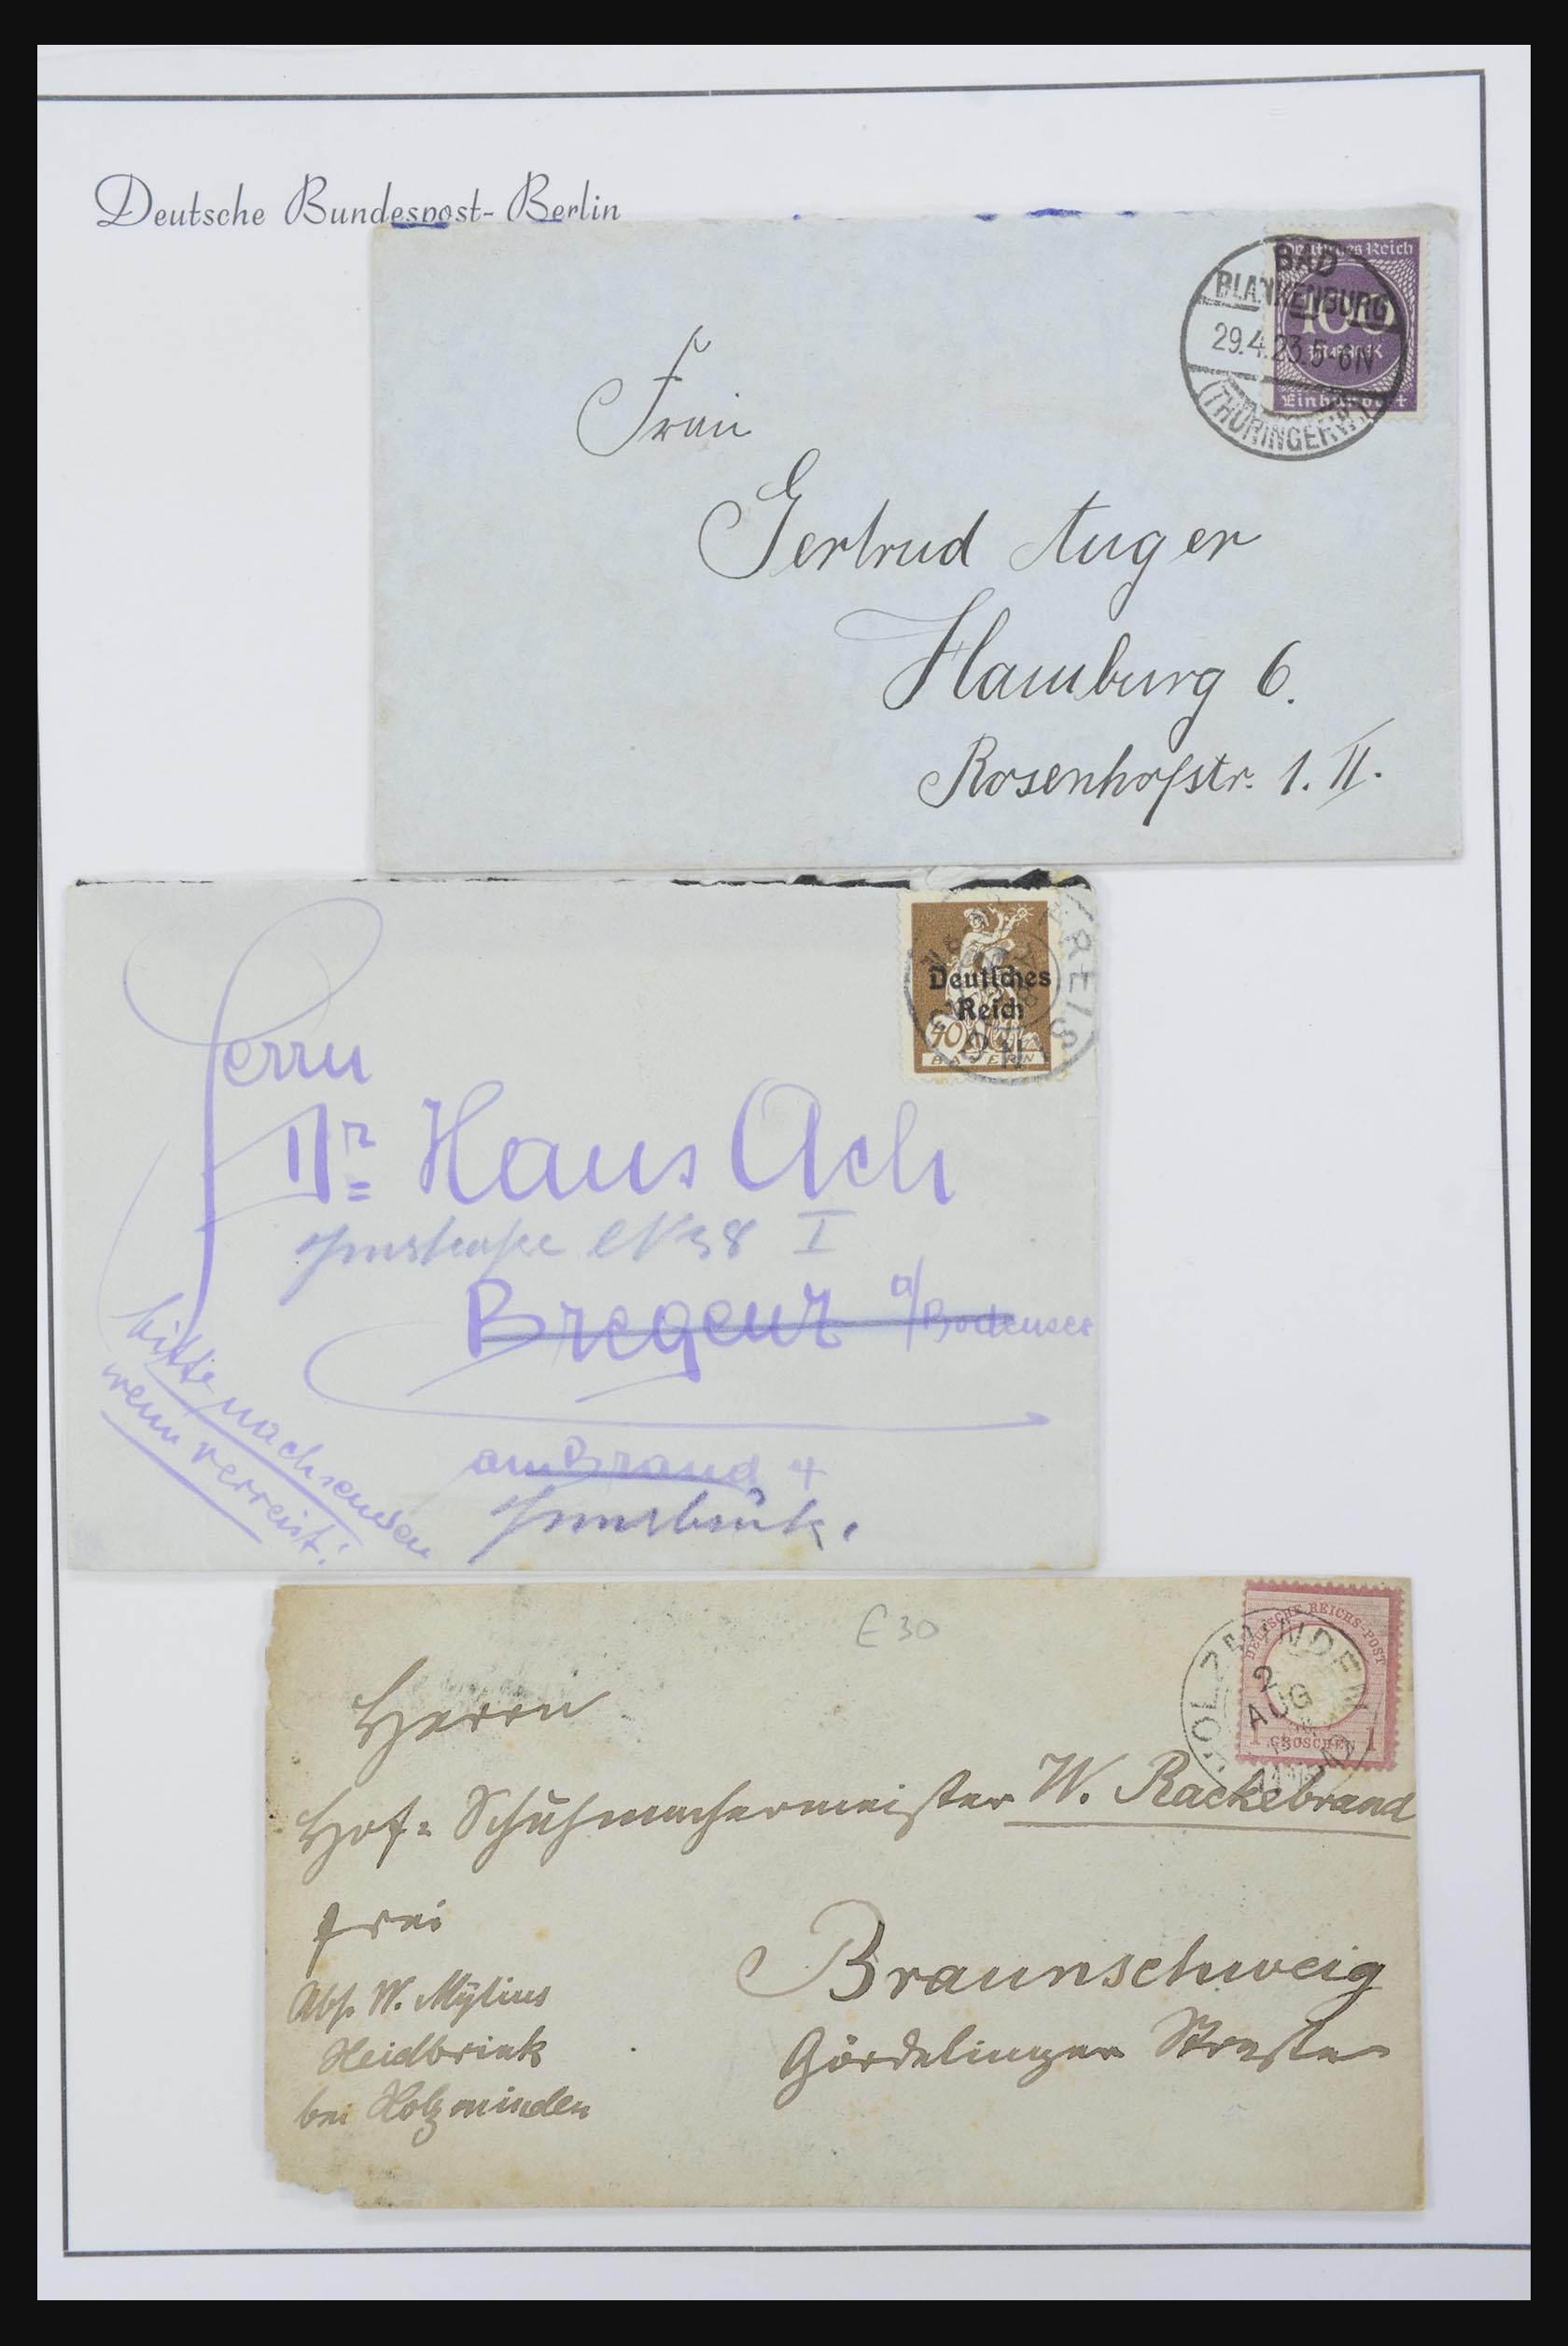 Deutsche Bundespost-Berlin
Deutsches Reich
100
Mark
Einhundert
BAD
BLANKENBURG
29.4.23.5-6N
(THÜRINGERW.)
Frau
Gertrud Auger
Hamburg 6.
Rosenhofstr. 1. II.
Deutsches
Reich
40
BAYERN
Herrn
Dr Hans Ach
Innstraße No 38 I
Bregenz a/Bodensee
am Brand 4
Innsbruck.
bitte nachsenden
wenn verreist!
E30
DEUTSCHE REICHS-POST
1 GROSCHEN 1
HOLZMINDEN
2
AUG
Herrn
Hof- Schuhmachermeister W. Rackebrand
frei
Braunschweig
Gördelinger Strasse
Abs. W. Mylius
Heidbrink
bei Holzminden